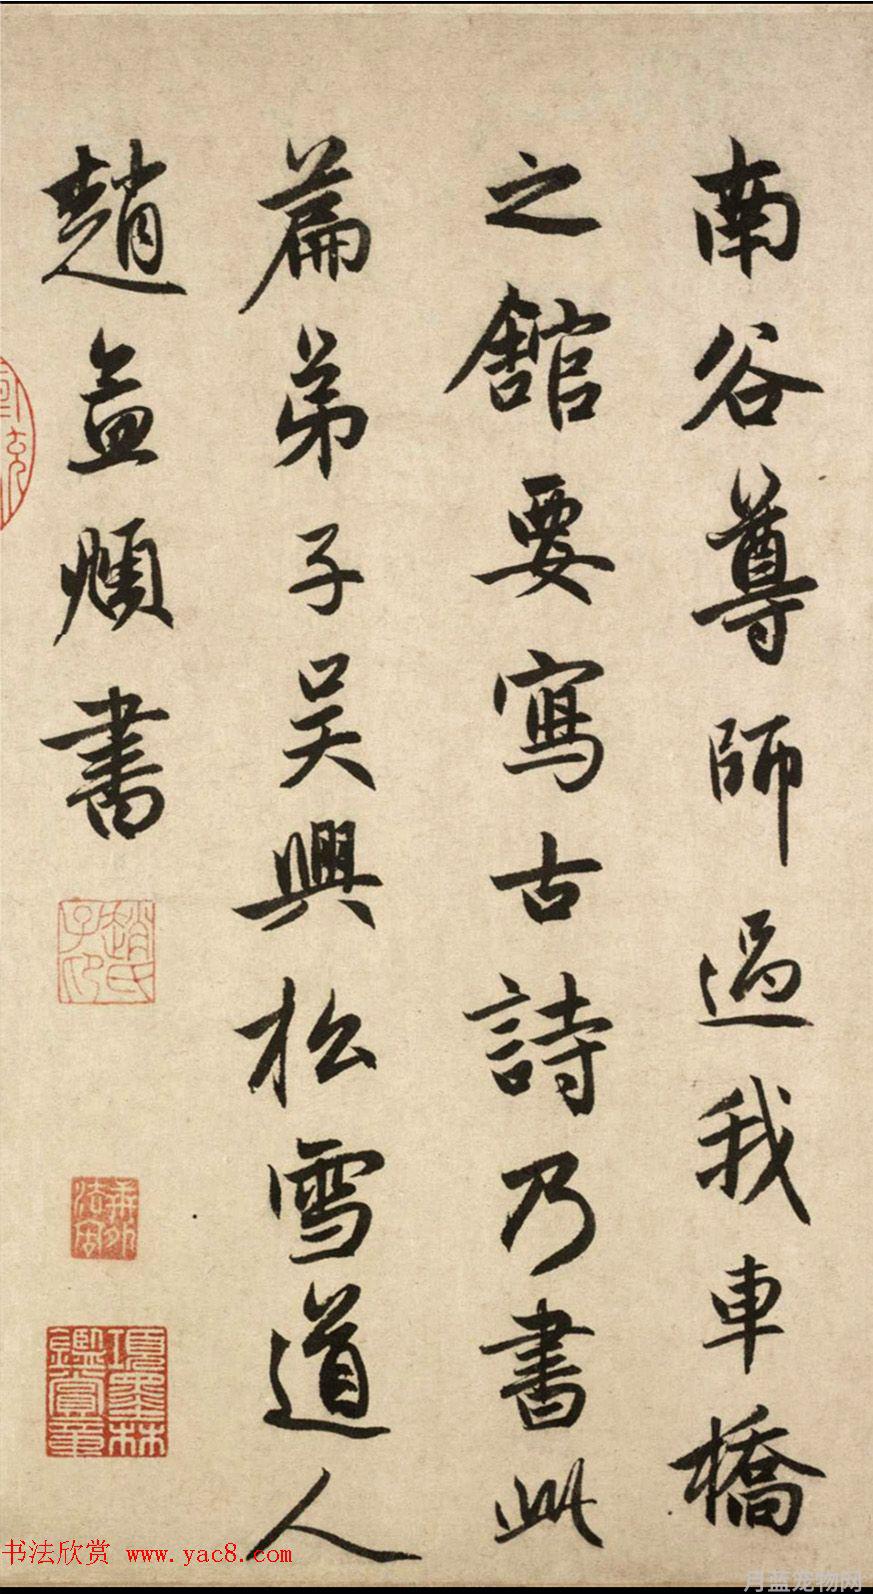 南谷尊師過我車橋
之舘要寫古詩乃書此
篇弟子吴興松雪道人
趙孟頫書
趙氏子印
項墨林鑑賞章
书法欣赏 www.yac8.com
月蓝宠物网